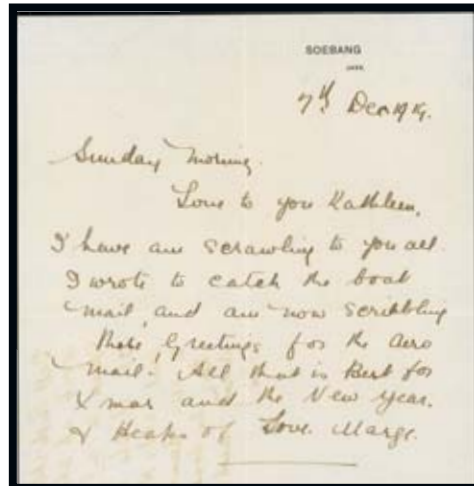 SOEBANG
JAVA.
7th Dec 1919.
Sunday Morning.
Love to you Kathleen,
I have am scrawling to you all.
I wrote to catch the boat
mail, and am now scribbling
these Greetings for the Aero
mail. All that is Best for
Xmas and the New Year.
& Heaps of Love. Marge.